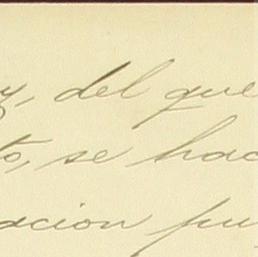 y, del que
to, se hac
acion pu